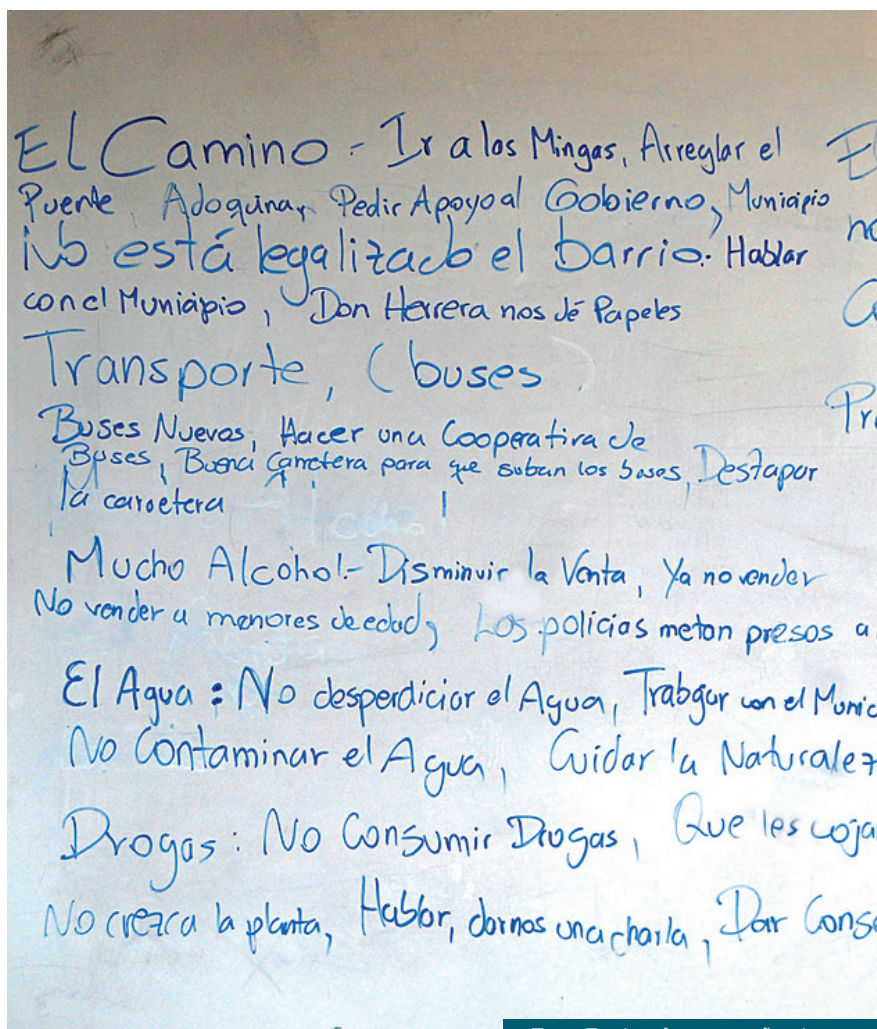 El Camino - Ir a las Mingas, Arreglar el El
Puente, Adoquinar, Pedir Apoyo al Gobierno, Municipio
No está legalizado el barrio: Hablar no
con el Municipio, Don Herrera nos dé Papeles
Transporte, (buses)
Buses Nuevos, Hacer una Cooperativa de Pr
Buses, Buena Carretera para que suban los buses, Destapar
la carretera
Mucho Alcohol.- Disminuir la Venta, Ya no vender
No vender a menores de edad, Los policias metan presos a
El Agua: No desperdiciar el Agua, Trabajar con el Munic
No Contaminar el Agua, Cuidar la Naturalez
Drogas: No Consumir Drogas, Que les coja
No crezca la planta, Hablar, darnos una charla, Dar Conse